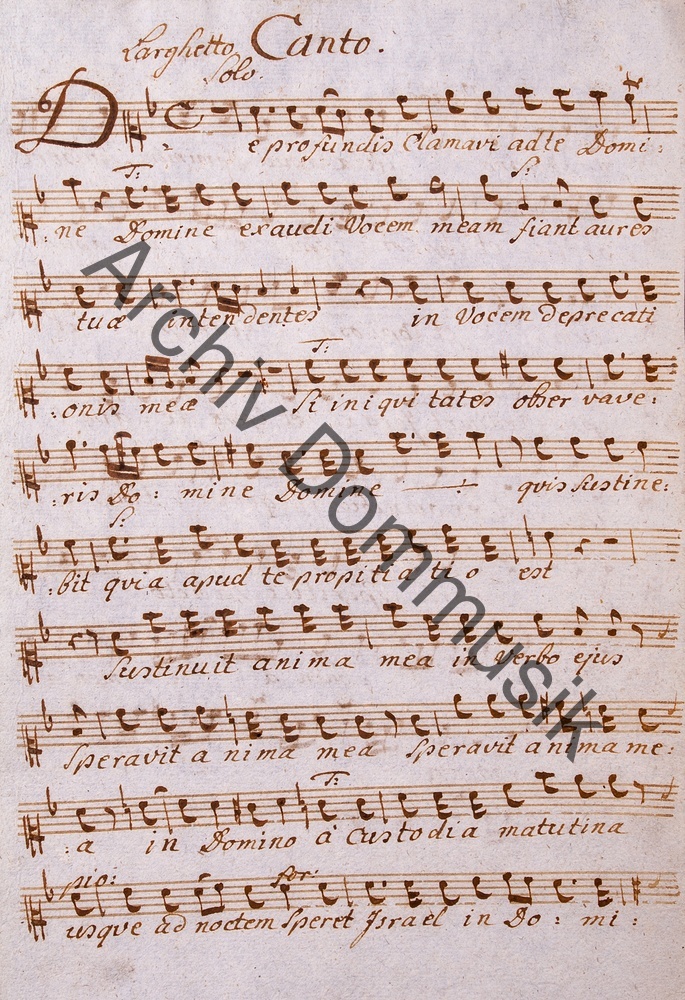 Larghetto Canto.
Solo.
De profundis Clamavi ad te Domi:
T: S:
:ne Domine exaudi Vocem meam fiant aures
tuæ intendentes in Vocem deprecati
T:
:onis meæ Si iniqvi tates obser vave:
:ris Do: mine Domine qvis sustine:
S:
:bit qvia apud te propitiatio est
Sustinuit anima mea in Verbo ejus
Speravit a nima mea Speravit anima me:
T:
:a in Domino a Custodia matutina
pio: for:
usqve ad noctem Speret Israel in Do: mi:
Archiv Dommusik